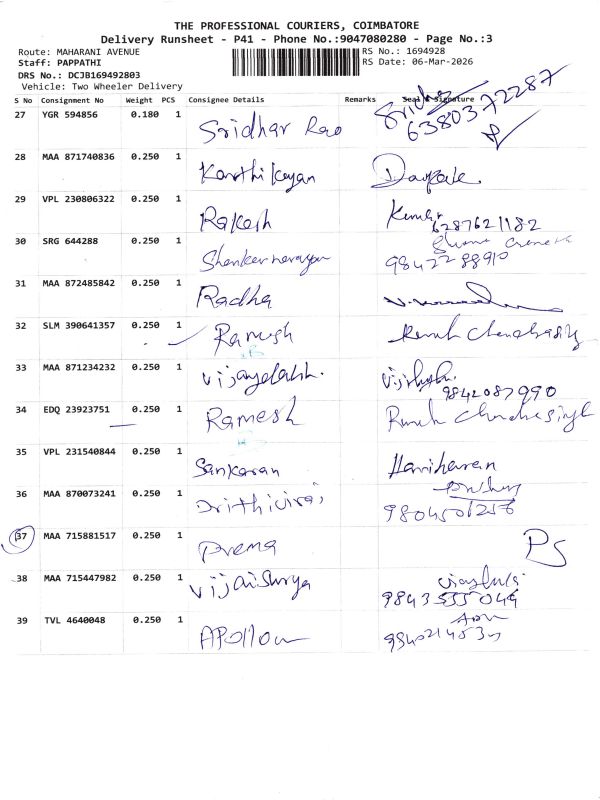 THE PROFESSIONAL COURIERS, COIMBATORE
Delivery Runsheet - P41 - Phone No.:9047080280 - Page No.:3
Route: MAHARANI AVENUE
RS No.: 1694928
Staff: PAPPATHI
RS Date: 06-Mar-2026
DRS No.: DCJB169492803
Vehicle: Two Wheeler Delivery
S No Consignment No Weight PCS Consignee Details Remarks Seal & Signature
27 YGR 594856 0.180 1 Sridhar Rao 6380372287
28 MAA 871740836 0.250 1 Karthikeyan
29 VPL 230806322 0.250 1 Rakesh Kumar
6287621182
30 SRG 644288 0.250 1 Shankernarayan
9842288910
31 MAA 872485842 0.250 1 Radha
32 SLM 390641357 0.250 1 Ramesh
33 MAA 871234232 0.250 1 Vijayalakh.
9842087990
34 EDQ 23923751 0.250 1 Ramesh
35 VPL 231540844 0.250 1 Sankaran Hariharan
36 MAA 870073241 0.250 1 Drithiviraj
9804501256
37 MAA 715881517 0.250 1 Prema PS
38 MAA 715447982 0.250 1 Vijaisurya
9843555049
39 TVL 4640048 0.250 1 Apollo